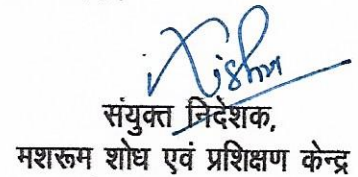 संयुक्त निदेशक,
मशरूम शोध एवं प्रशिक्षण केन्द्र